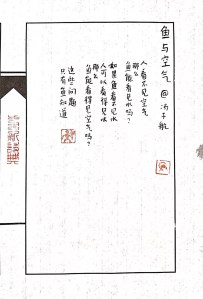 鱼与空气 @汤子航
人看不见空气
那么
鱼能看见水吗？
如果鱼看不见水
人可以看得见水
那么
鱼能看得见空气吗？
这些问题
只有鱼知道